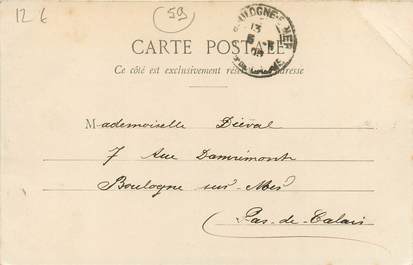 12 €
59
CARTE POSTALE
Ce côté est exclusivement réservé à l'adresse
BOULOGNE-S-MER
13
Mademoiselle Diéval
7 Rue Damrémont
Boulogne sur-Mer
Pas-de-Calais